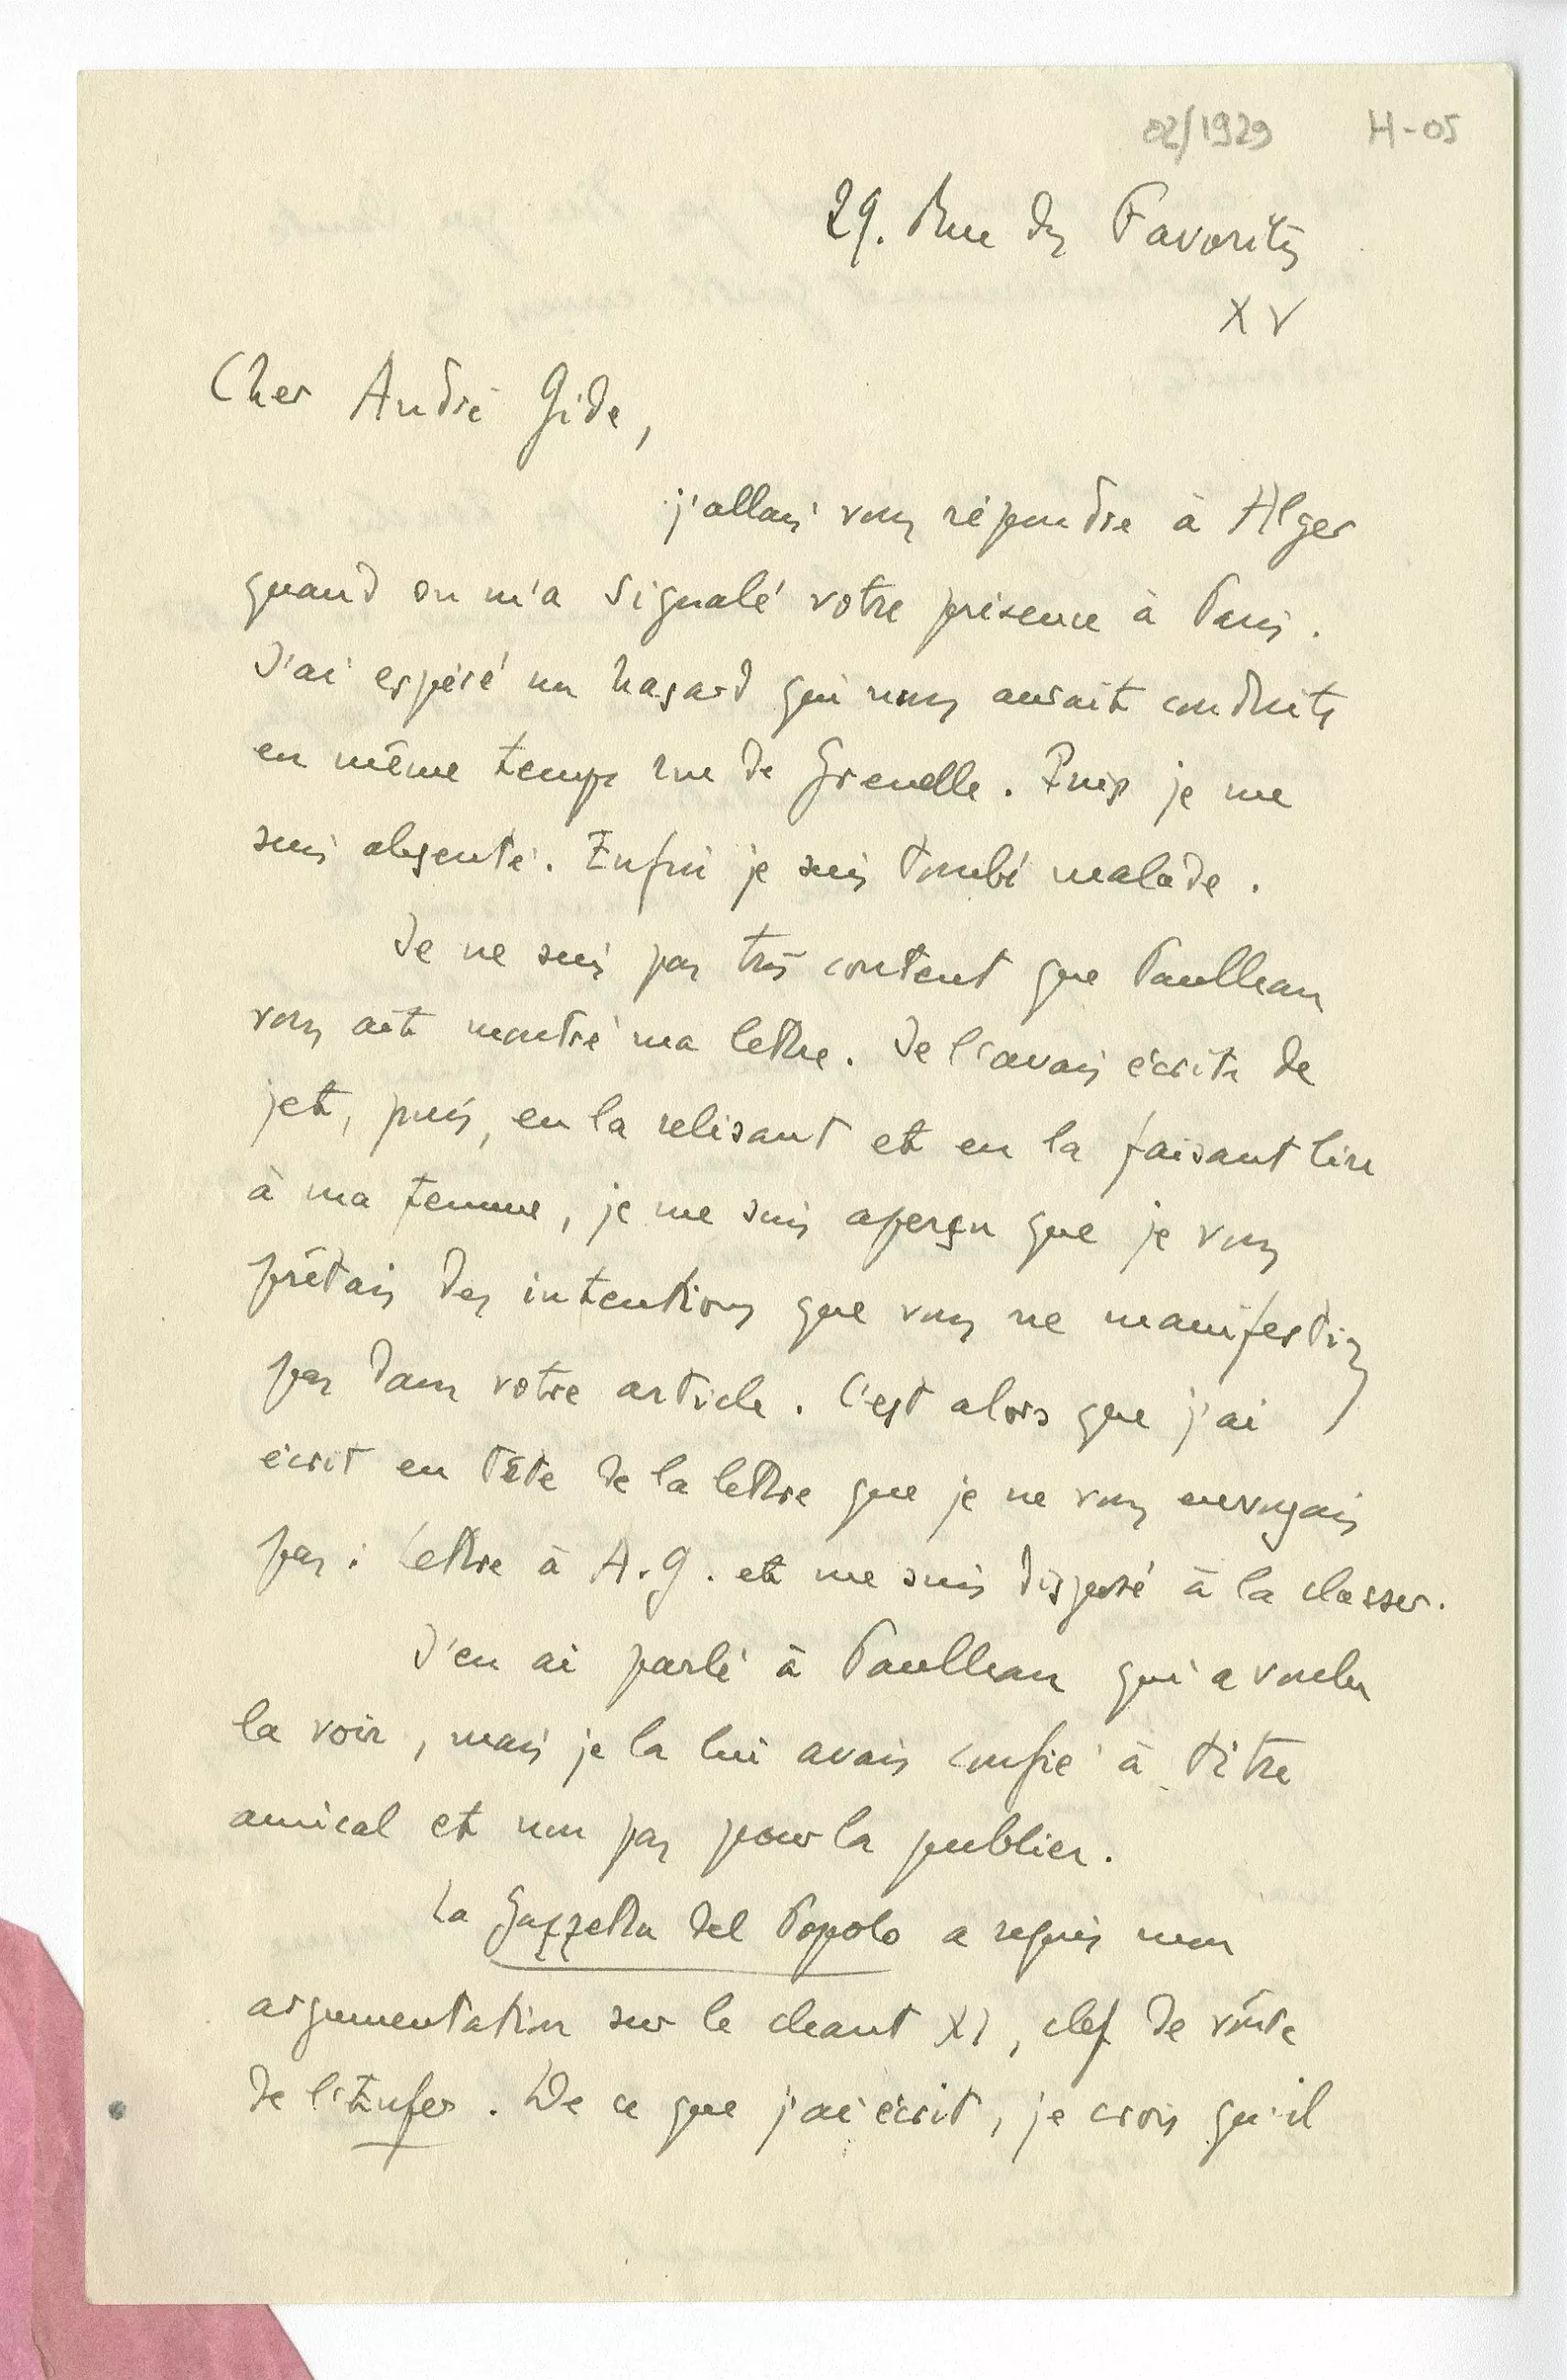 02/1929 H-05
29. Rue des Favorites
XV
Cher André Gide,
j'allais vous répondre à Alger
quand on m'a signalé votre présence à Paris.
J'ai espéré un hasard qui nous aurait conduits
en même temps rue de Grenelle. Puis je me
suis absenté. Enfin je suis tombé malade.
Je ne suis pas très content que Paulhan
vous ait montré ma lettre. Je l'avais écrite de
jet, puis, en la relisant et en la faisant lire
à ma femme, je me suis aperçu que je vous
prêtais des intentions que vous ne manifestiez
pas dans votre article. C'est alors que j'ai
écrit en tête de la lettre que je ne vous envoyais
pas : Lettre à A.G. et me suis disposé à la classer.
J'en ai parlé à Paulhan qui a voulu
la voir, mais je la lui avais confié à titre
amical et non pas pour la publier.
La Gazzetta del Popolo a repris mon
argumentation sur le chant XI, clef de voûte
de l'Enfer. De ce que j'ai écrit, je crois qu'il